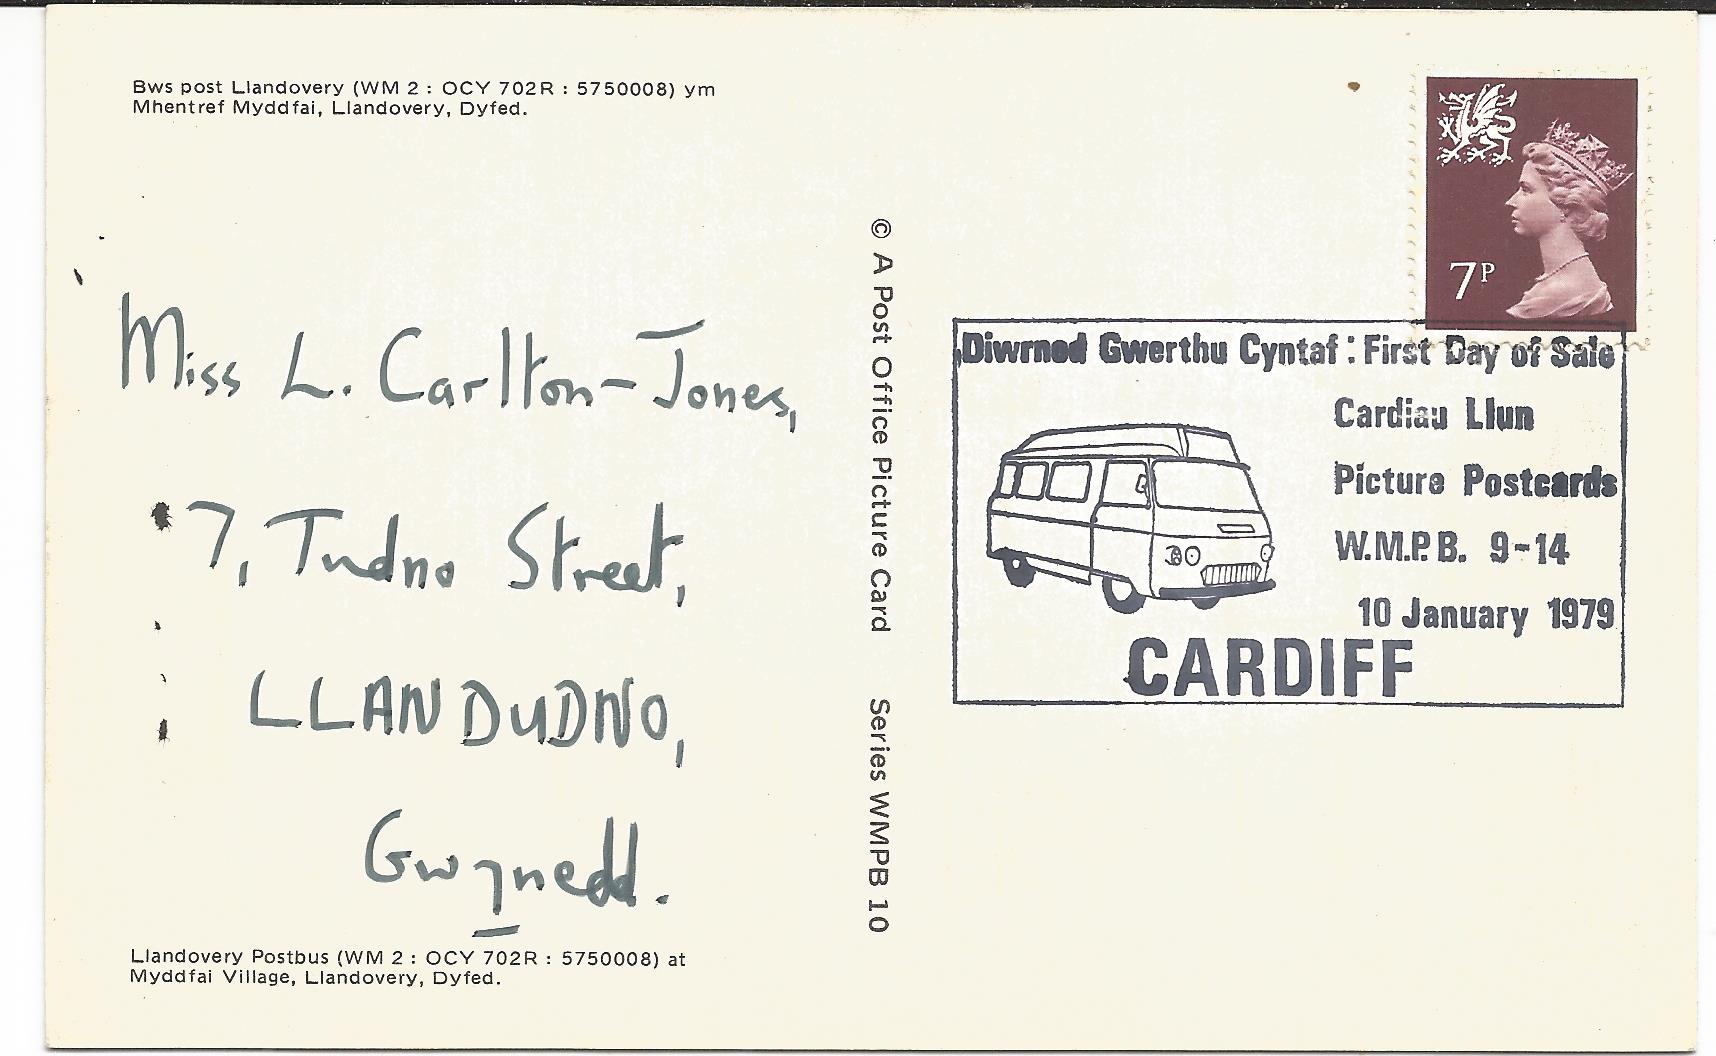 Bws post Llandovery (WM 2 : OCY 702R : 5750008) ym
Mhentref Myddfai, Llandovery, Dyfed.
Miss L. Carlton-Jones,
7, Tudno Street,
LLANDUDNO,
Gwynedd.
Llandovery Postbus (WM 2 : OCY 702R : 5750008) at
Myddfai Village, Llandovery, Dyfed.
© A Post Office Picture Card Series WMPB 10
7P
Diwrnod Gwerthu Cyntaf : First Day of Sale
Cardiau Llun
Picture Postcards
W.M.P.B. 9-14
10 January 1979
CARDIFF